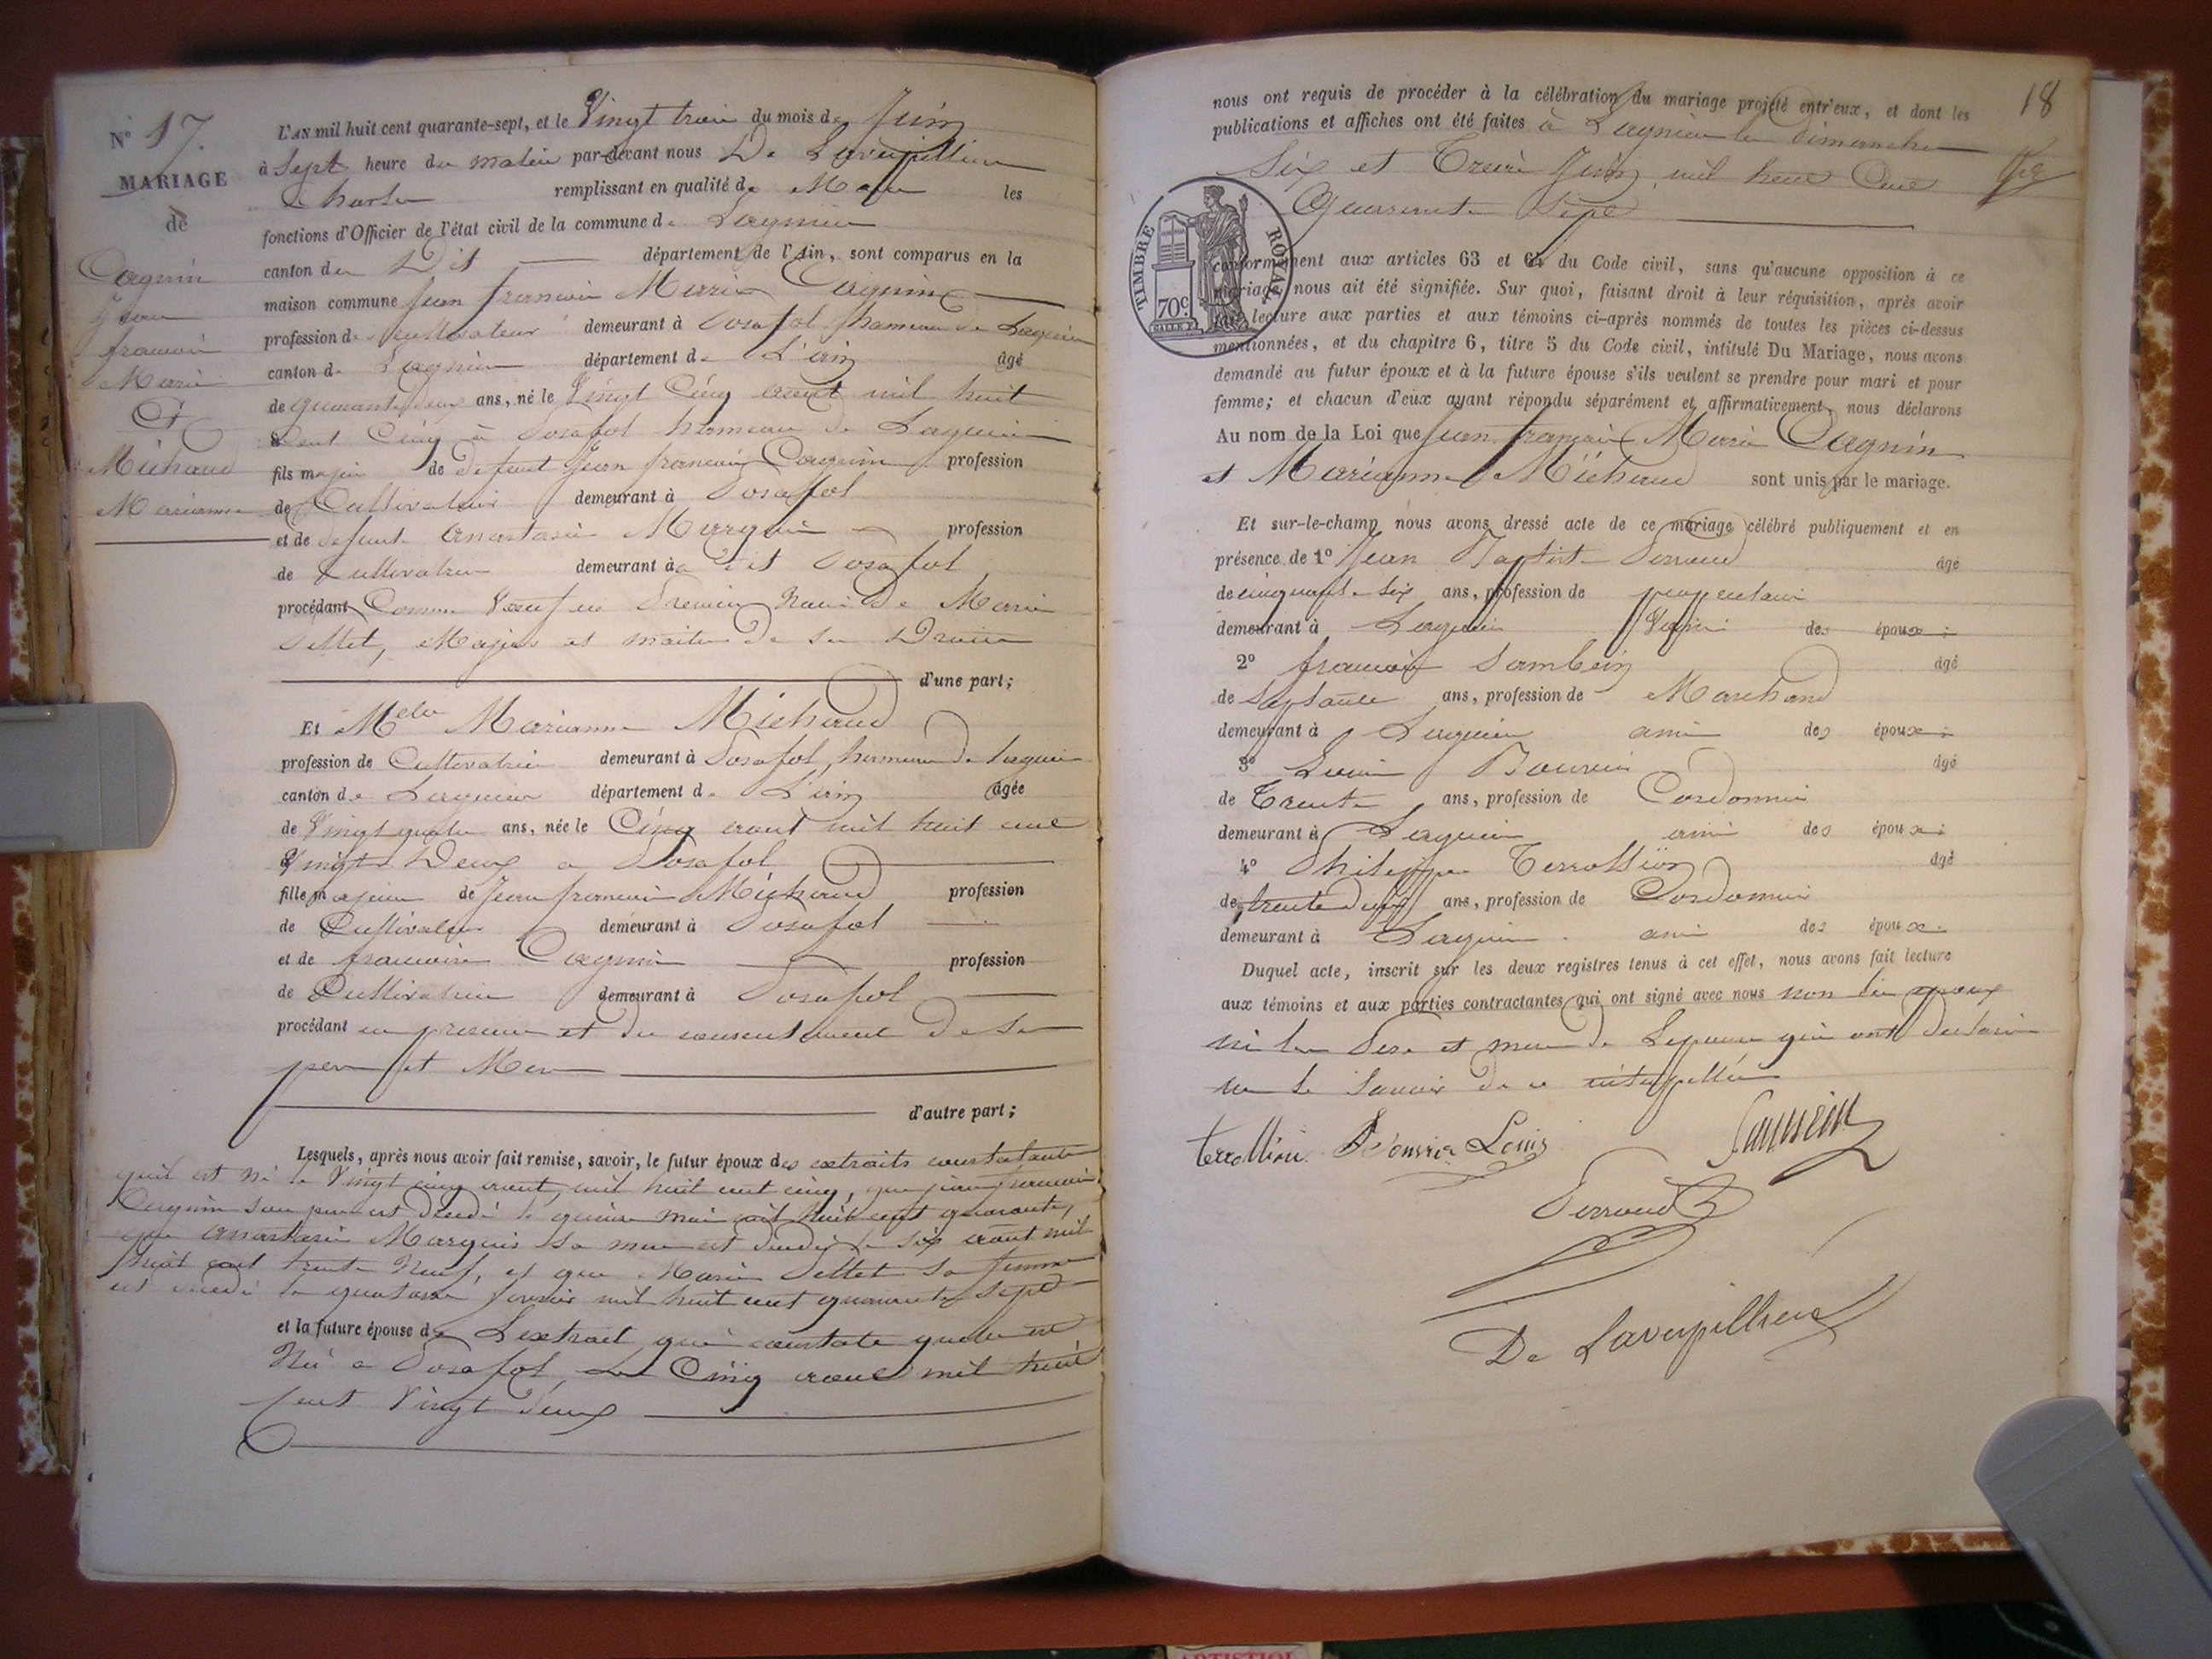 N° 17.
MARIAGE
de
Cagnin
Jean
francois
Marie
Et
Michaud
Marianne
L'AN mil huit cent quarante-sept, et le Vingt trois du mois de Juin
à Sept heure du matin par-devant nous De Laverpillier
Charles remplissant en qualité de Maire les
fonctions d'Officier de l'état civil de la commune de Lagnieu
canton du Dit département de l'Ain, sont comparus en la
maison commune Jean francois Marie Cagnin
profession de cultivateur demeurant à Posafol hameau de Lagnieu
canton de Lagnieu département de L'ain âgé
de quarante deux ans, né le Vingt Cinq aout mil huit
Cent Cinq à Posafol hameau de Lagnieu
fils majeur de defunt Jean francois Cagnin profession
de Cultivateur demeurant à Posafol
et de defunte anastasie Marquis profession
de Cultivatrice demeurant à dit Posafol
procédant Comme Veuf en Premier de Marie
Pellet, Majeur et maitre de ses Droits
d'une part;
Et Melle Marianne Michaud
profession de Cultivatrice demeurant à Posafol, hameau de Lagnieu
canton de Lagnieu département de L'ain âgée
de Vingt quatre ans, née le Cinq aout mil huit cent
Vingt Deux a Posafol
fille majeure de Jean francois Michaud profession
de Cultivateur demeurant à Posafol
et de francoise Cagnin profession
de Cultivatrice demeurant à Posafol
procédant en presence et du consentement de ses
pere et Mere
d'autre part;
Lesquels, après nous avoir fait remise, savoir, le futur époux des extraits constatants
quil est né le Vingt cinq aout mil huit cent cinq, que jean francois
Cagnin son pere est décedé le quinze mai mil huit cent quarante,
que anastasie Marquis sa mere est decedée le six aout mil
huit cent trente Neuf, et que Marie Pellet sa femme
est decedé le quatorze mil huit cent quarante sept
et la future épouse de L'extrait qui constate quelle est
Née a Posafol le Cinq aout mil huit
Cent Vingt deux
18
nous ont requis de procéder à la célébration du mariage projeté entr'eux, et dont les
publications et affiches ont été faites à Lagnieu les dimanches
Six et Treize Juin mil huit Cent
Quarante Sept
TIMBRE ROYAL
70c
conformément aux articles 63 et 64 du Code civil, sans qu'aucune opposition à ce
mariage nous ait été signifiée. Sur quoi, faisant droit à leur réquisition, après avoir
fait lecture aux parties et aux témoins ci-après nommés de toutes les pièces ci-dessus
mentionnées, et du chapitre 6, titre 5 du Code civil, intitulé Du Mariage, nous avons
demandé au futur époux et à la future épouse s'ils veulent se prendre pour mari et pour
femme; et chacun d'eux ayant répondu séparément et affirmativement, nous déclarons
Au nom de la Loi que Jean francois Marie Cagnin
et Marianne Michaud sont unis par le mariage.
Et sur-le-champ nous avons dressé acte de ce mariage célébré publiquement et en
présence de 1° Jean Baptiste Perraud âgé
de cinquante six ans, profession de propriétaire
demeurant à Lagnieu Voisin des époux;
2° francois Sambein âgé
de Saptante ans, profession de Marchand
demeurant à Lagnieu ami des époux;
3° Louis Bouvier âgé
de Trente ans, profession de Cordonnier
demeurant à Lagnieu ami des époux;
4° Philippe Terrollion âgé
de trente deux ans, profession de Cordonnier
demeurant à Lagnieu ami des époux.
Duquel acte, inscrit sur les deux registres tenus à cet effet, nous avons fait lecture
aux témoins et aux parties contractantes qui ont signé avec nous non les epoux
ni les Pere et mere de Lepouse qui ont declaré
ne le Savoir de ce interpellés
Terrollion Bouvier Louis
Perraud
De Laverpillier